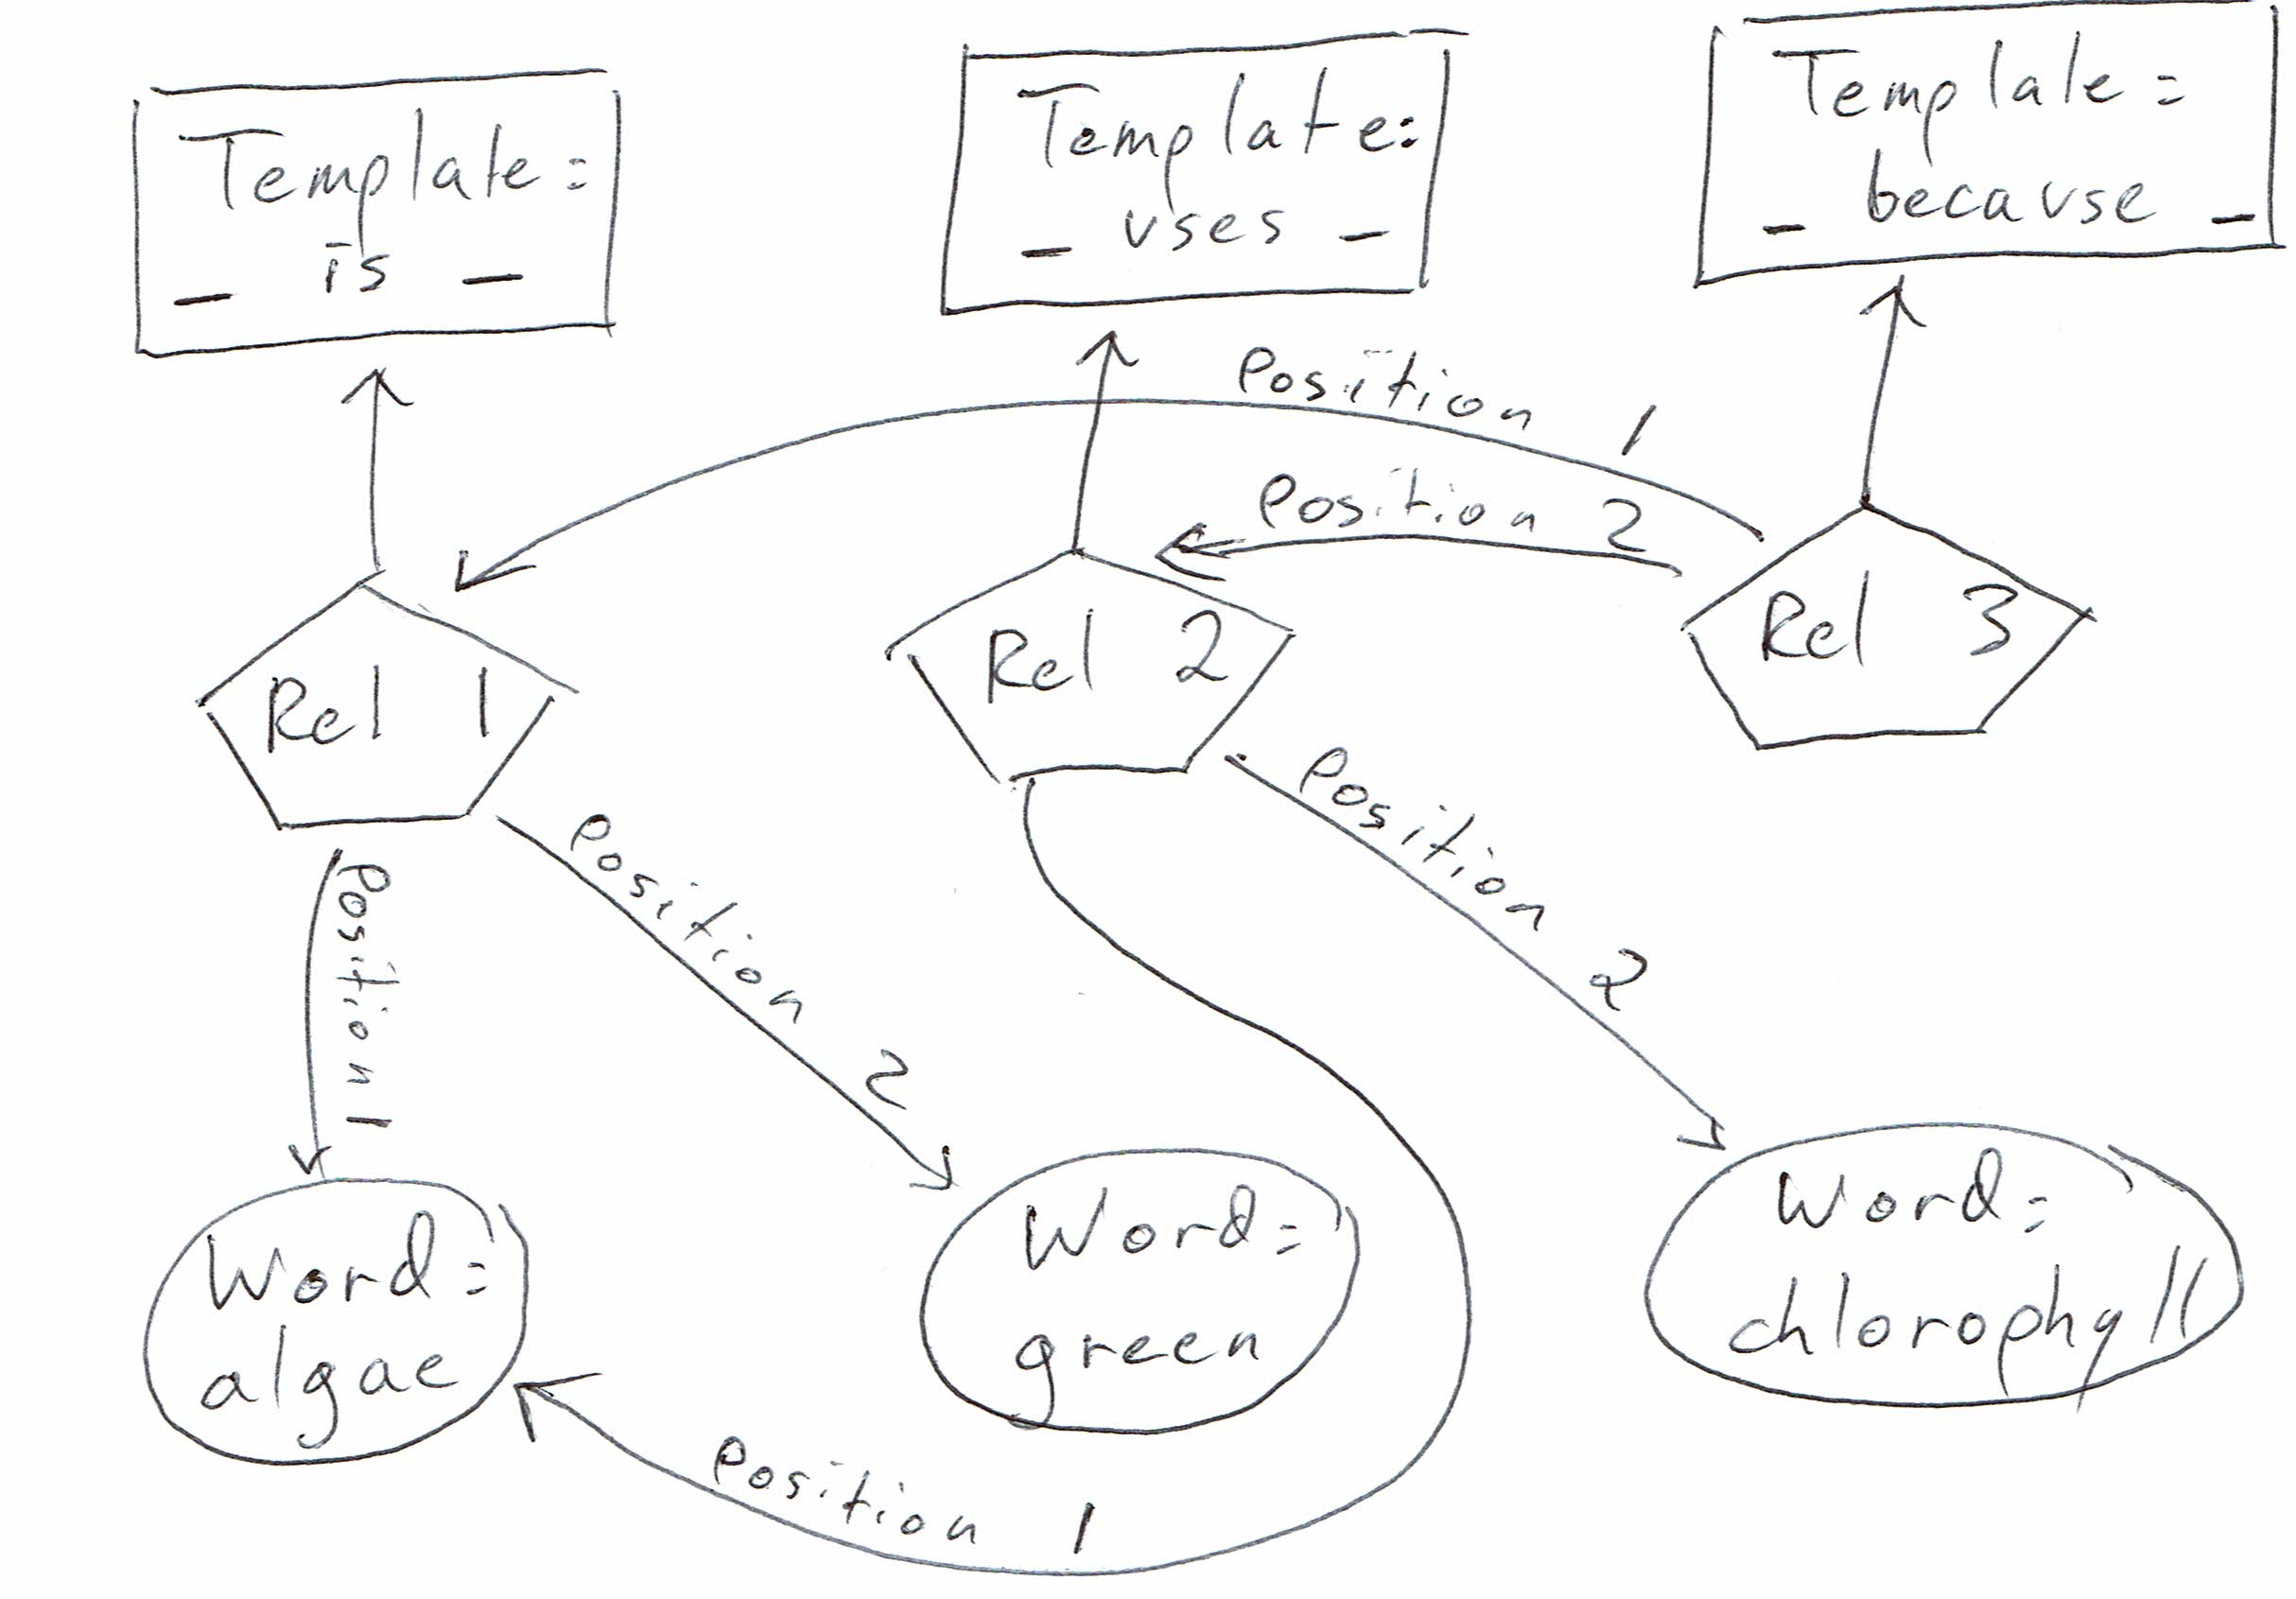 Template:
_ is _
Template:
_ uses _
Template:
_ because _
Position 1
Position 2
Rel 1
Rel 2
Rel 3
Position 1
Position 2
Position 2
Word:
algae
Word:
green
Word:
chlorophyll
Position 1